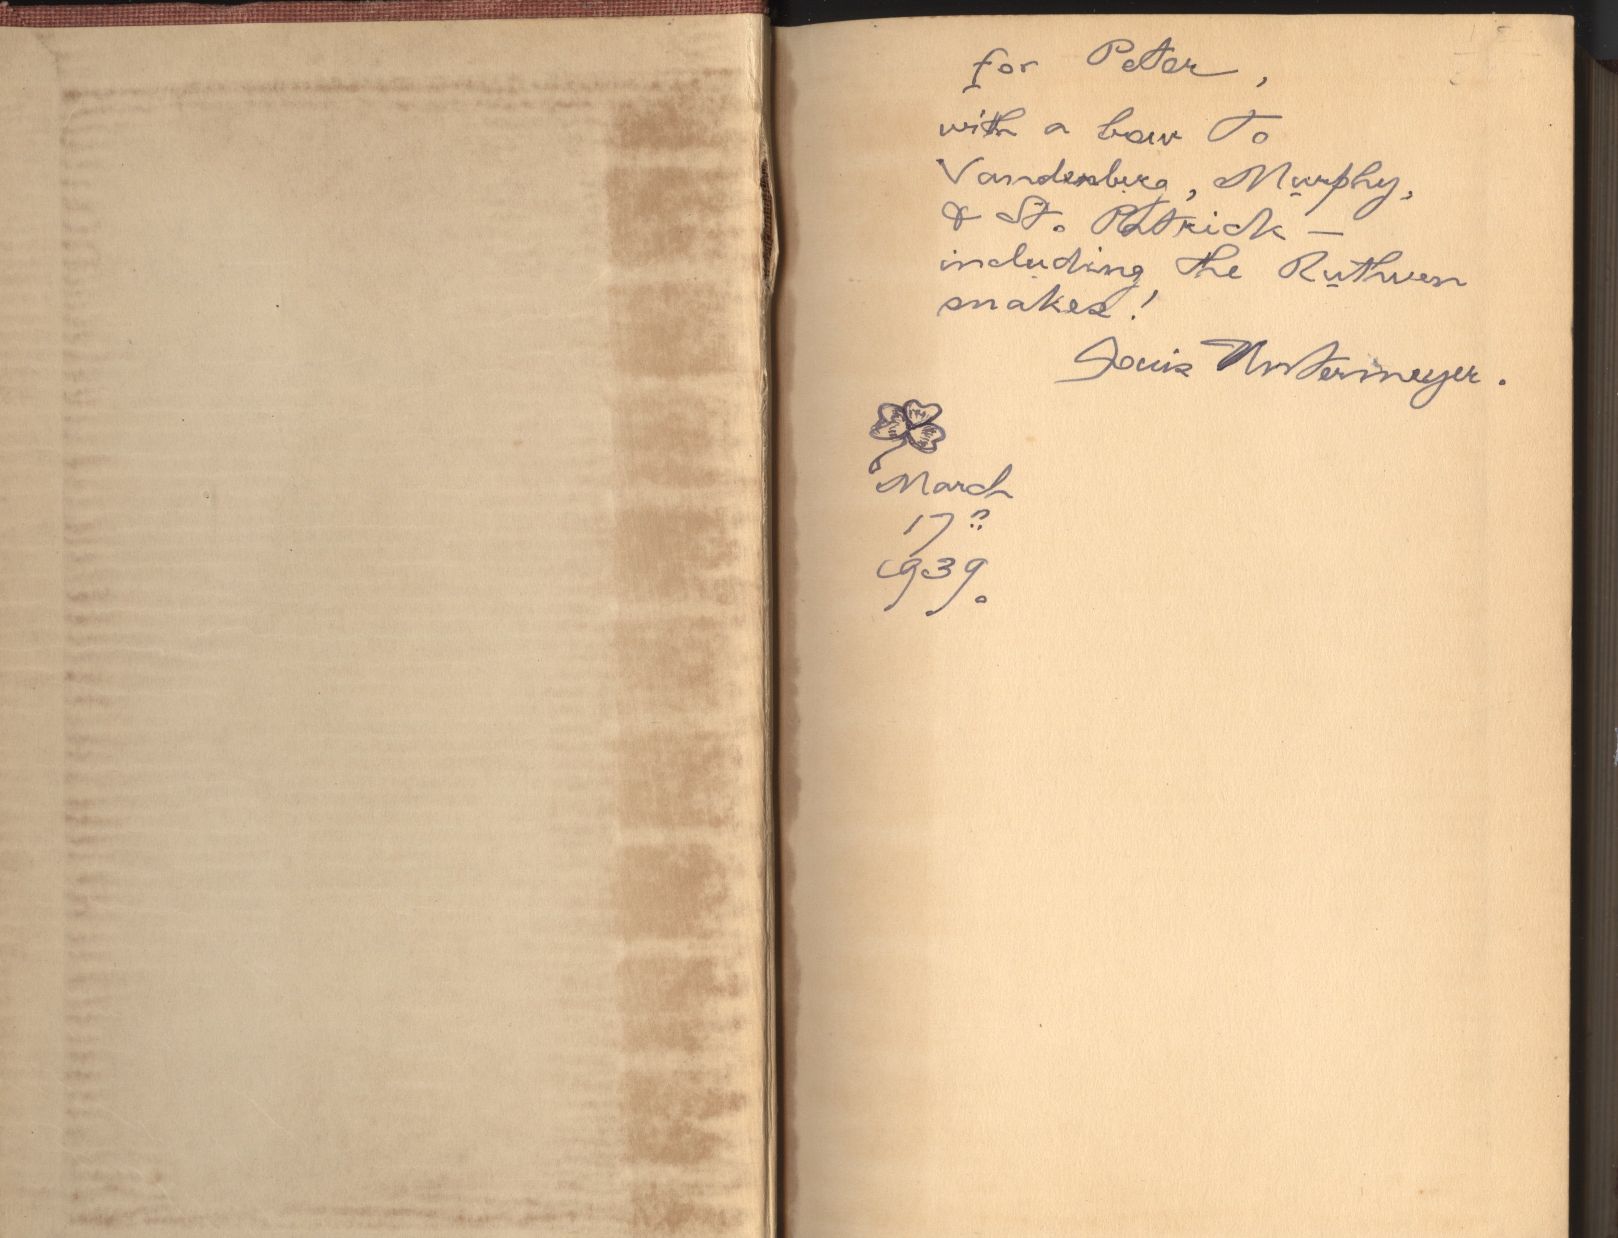 for Peter,
with a bow To
Vandenberg, Murphy,
& St. Patrick —
including the Ruthven
snakes!
Louis Untermeyer.
March
17
1939.